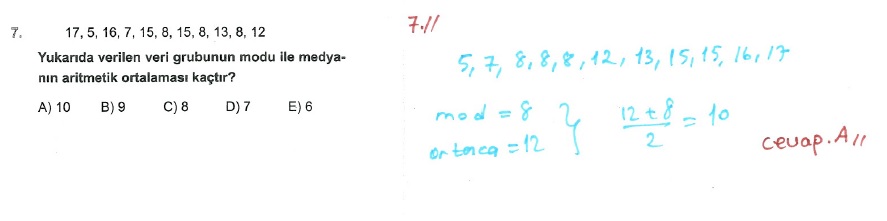 7. 17, 5, 16, 7, 15, 8, 15, 8, 13, 8, 12
Yukarıda verilen veri grubunun modu ile medya-
nın aritmetik ortalaması kaçtır?
A) 10 B) 9 C) 8 D) 7 E) 6
7.//
5, 7, 8, 8, 8, 12, 13, 15, 15, 16, 17
mod = 8
ortanca = 12
12 + 8 / 2 = 10
cevap. A //